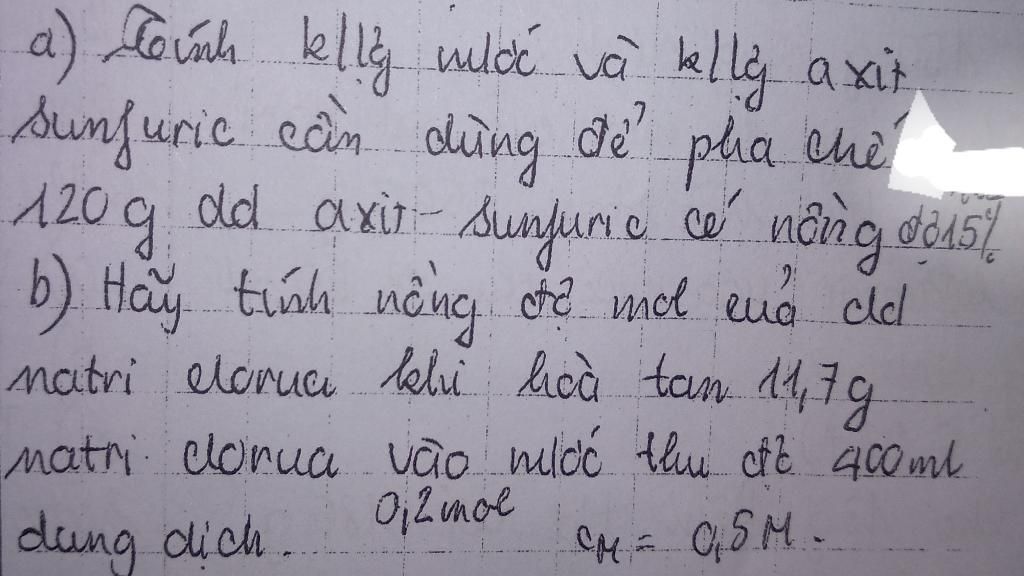 a) Tính kllg nước và kllg axit
sunfuric cần dùng để pha chế
120g dd axit sunfuric có nồng độ 15%
b) Hãy tính nồng độ mol của dd
natri clorua khi hoà tan 11,7g
natri clorua vào nước thu đc 400ml
dung dịch. 0,2mol CM = 0,5M.